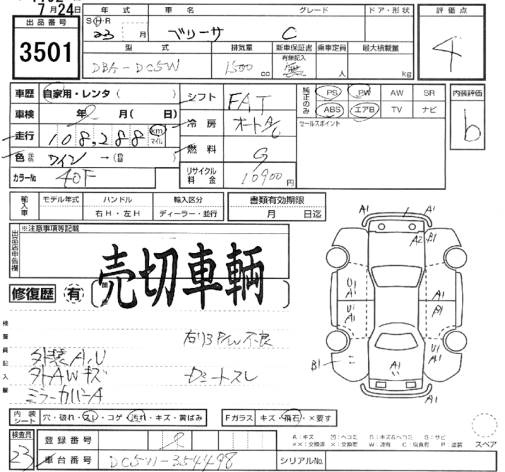 7月24日
出品番号 年式 車名 グレード ドア・形状 評価点
3501 SHR 23 月 ベリーサ C 4
型式 排気量 新車保証書 乗車定員 最大積載量
DBA-DC5W 1500 cc 有無記入 無 人 kg
車歴 自家用・レンタ( ) シフト FAT 純正のみ PS PW AW SR 内装評価
車検 年 月( 日) 冷房 オートA/C ABS エアB TV ナビ b
走行 108,288 km マイル セールスポイント
色 ワイン 燃料 G
カラーNo 40F リサイクル料金 10900
輸入車 モデル年式 ハンドル 輸入区分 書類有効期限
右H・左H ディーラー・並行 月 日迄
※注意事項等記載
売切車輌
修復歴 有
検査員記入欄
外装A,U
外AWキズ
ミラーカバーA
A1 A1 A2 B1
U1 A1 A1 U1
A1 A1
B1 A1
A1
内装シート 穴・破れ・スレ・コゲ 汚れ・キズ・黄ばみ Fガラス キズ・飛石・×要す
検査員 登録番号 スペア
23 車台番号 DC5W-354498 シリアルNo.